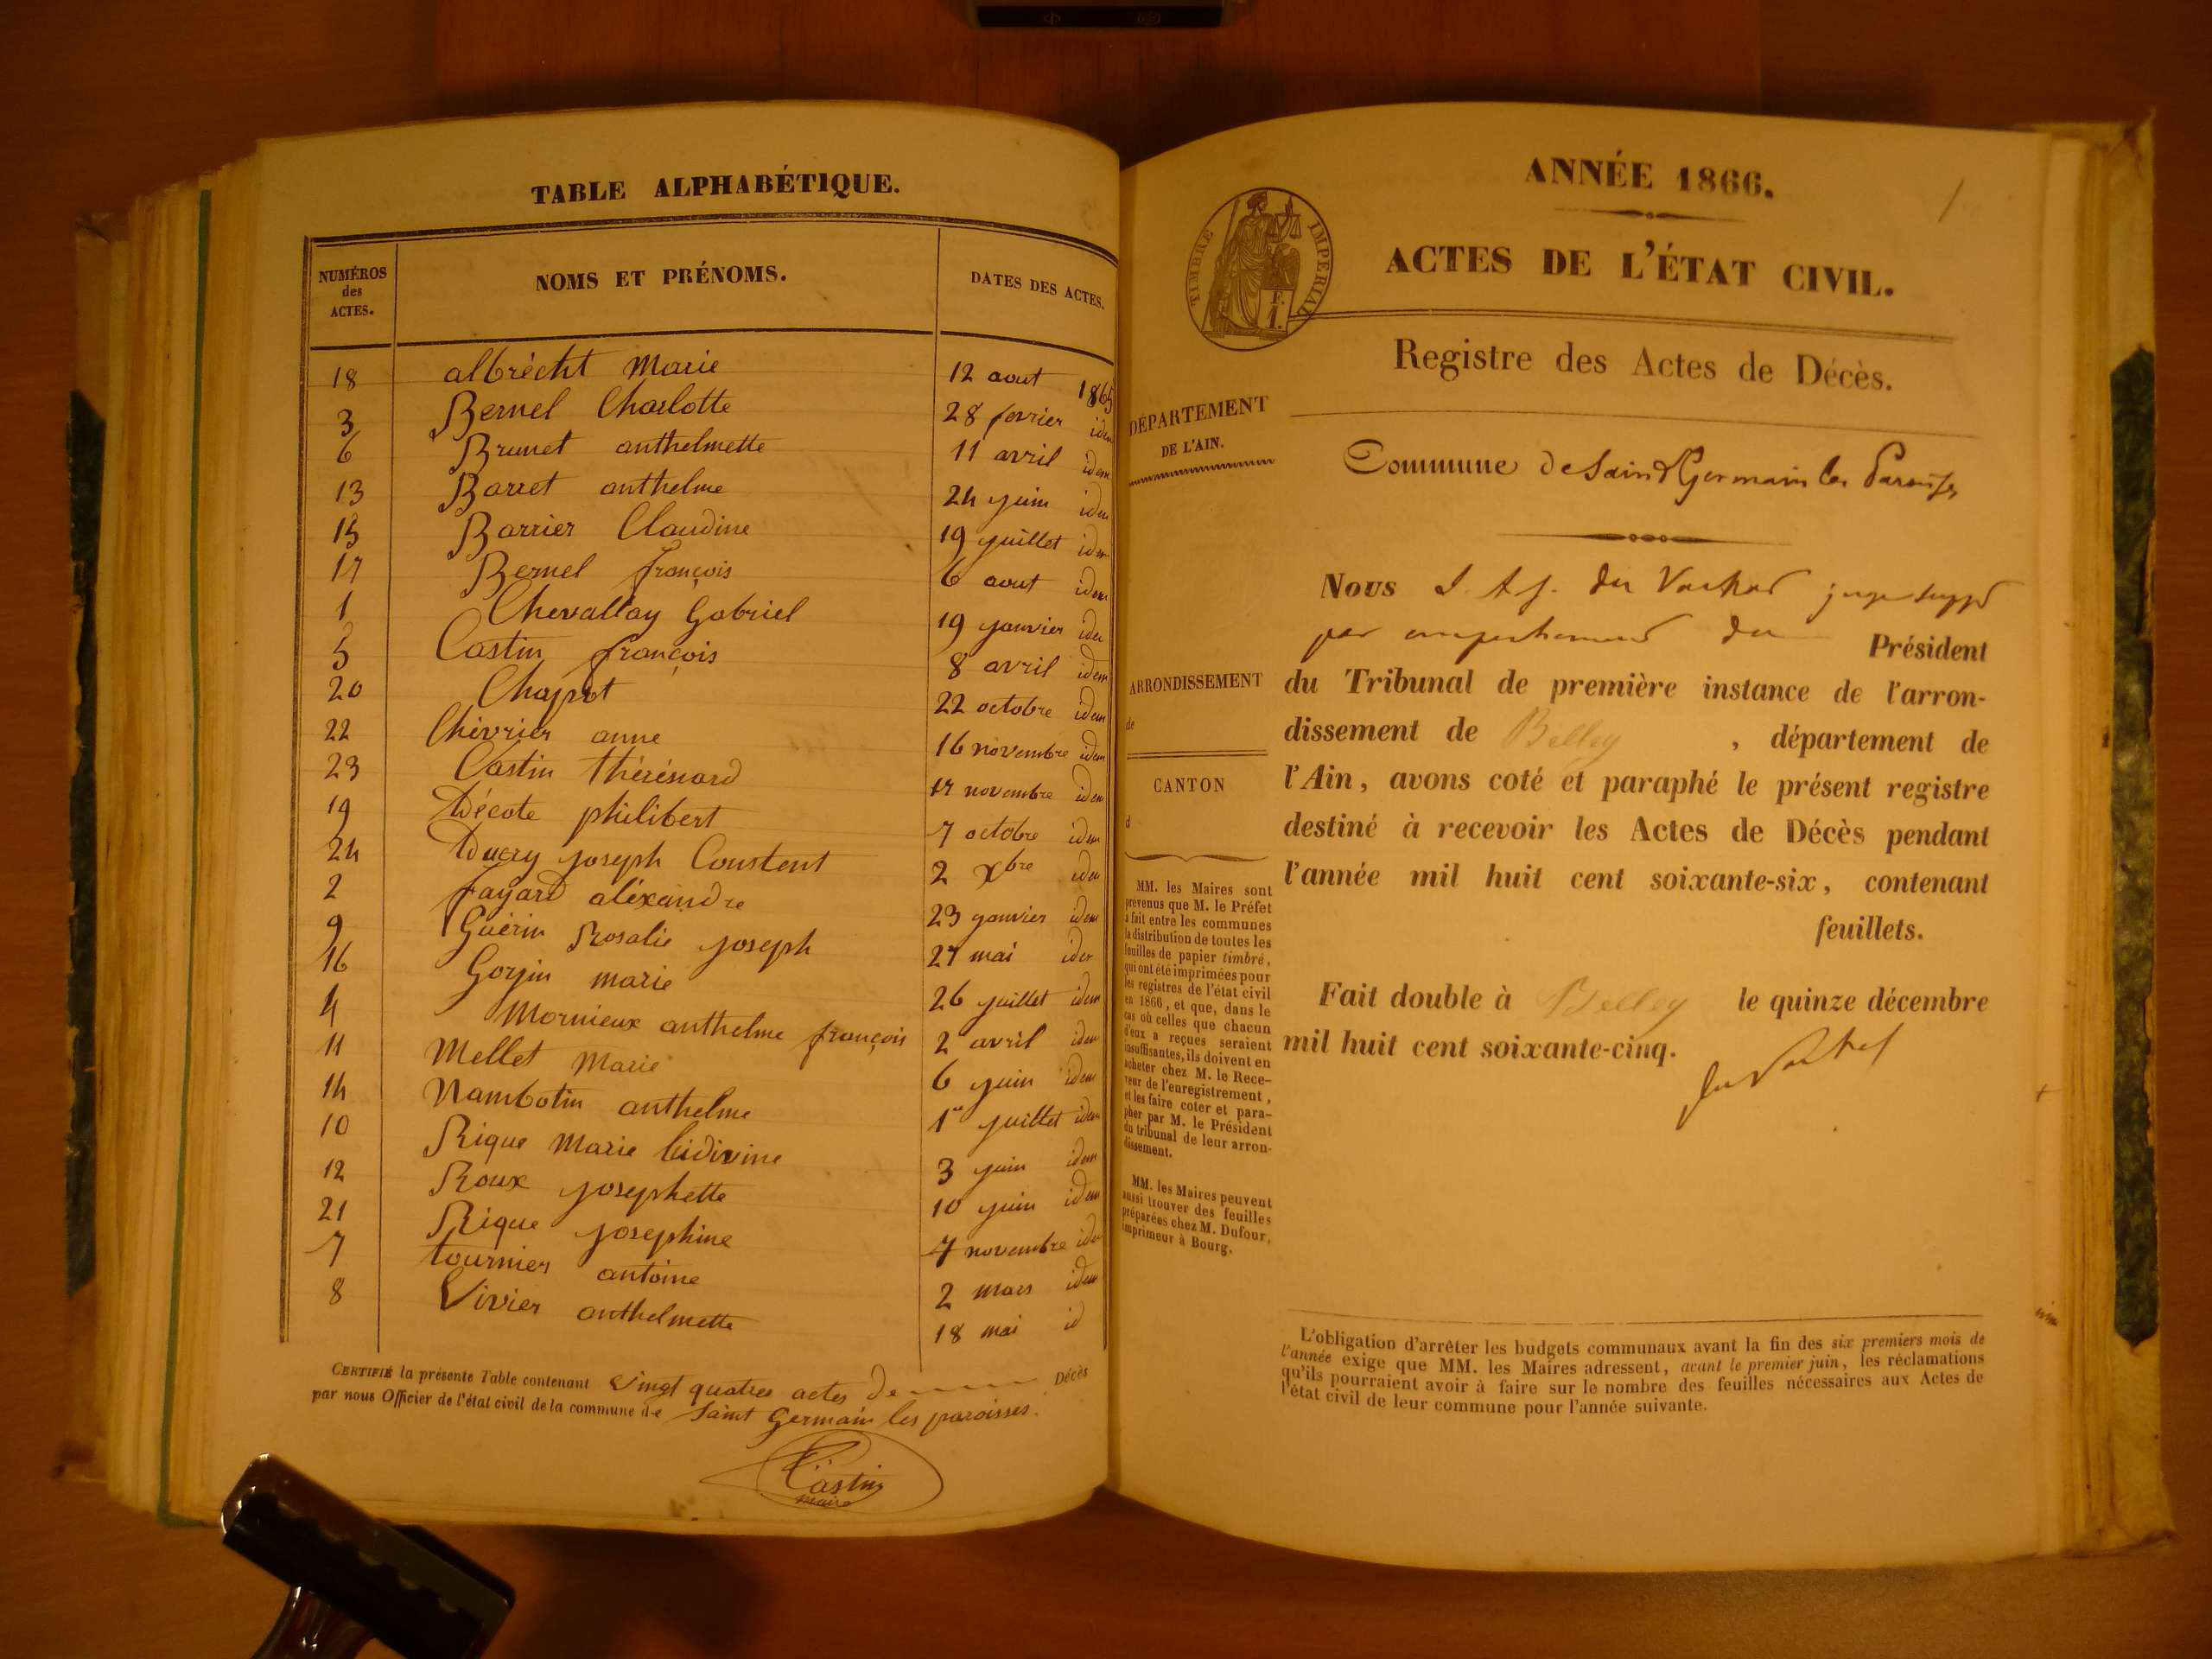 TABLE ALPHABÉTIQUE.
NUMÉROS des ACTES. NOMS ET PRÉNOMS. DATES DES ACTES.
18 albrécht Marie 12 aout 1865
3 Bernel Charlotte 28 fevrier idem
6 Brunet anthelmette 11 avril idem
13 Barret anthelme 24 juin idem
15 Barrier Claudine 19 juillet idem
17 Bernel françois 6 aout idem
1 Chevallay Gabriel 19 janvier idem
5 Castin françois 8 avril idem
20 Chapot 22 octobre idem
22 Chévrier anne 16 novembre idem
23 Castin 17 novembre idem
19 Décote philibert 7 octobre idem
24 Ducry joseph Constent 2 Xbre idem
2 fayard aléxandre 23 janvier idem
9 Guérin Rosalie joseph 27 mai idem
16 Gorjin marie 26 juillet idem
4 Mornieux anthelme françois 2 avril idem
11 Mellet Marie 6 juin idem
14 Nambotin anthelme 1er juillet idem
10 Rique Marie 3 juin idem
12 Roux josephette 10 juin idem
21 Rique josephine 7 novembre idem
7 tournier antoine 2 mars idem
8 Vivier anthelmette 18 mai id
CERTIFIÉ la présente Table contenant Vingt quatres actes de Décès
par nous Officier de l'état civil de la commune de Saint Germain les paroisses.
Castin
maire
ANNÉE 1866.
/
ACTES DE L'ÉTAT CIVIL.
TIMBRE IMPÉRIAL
F.
1.
Registre des Actes de Décès.
DÉPARTEMENT
DE L'AIN.
Commune de Saint Germain les Paroisses
Nous
par empechement du Président
ARRONDISSEMENT
de
du Tribunal de première instance de l'arron-
dissement de Belley, département de
CANTON
d
l'Ain, avons coté et paraphé le présent registre
destiné à recevoir les Actes de Décès pendant
l'année mil huit cent soixante-six, contenant
feuillets.
Fait double à Belley le quinze décembre
mil huit cent soixante-cinq.
MM. les Maires sont
prévenus que M. le Préfet
a fait entre les communes
la distribution de toutes les
feuilles de papier timbré,
qui ont été imprimées pour
les registres de l'état civil
en 1866, et que, dans le
cas où celles que chacun
d'eux a reçues seraient
insuffisantes, ils doivent en
acheter chez M. le Rece-
veur de l'enregistrement,
et les faire coter et para-
pher par M. le Président
du tribunal de leur arron-
dissement.
MM. les Maires peuvent
aussi trouver des feuilles
préparées chez M. Dufour,
imprimeur à Bourg.
L'obligation d'arrêter les budgets communaux avant la fin des six premiers mois de
l'année exige que MM. les Maires adressent, avant le premier juin, les réclamations
qu'ils pourraient avoir à faire sur le nombre des feuilles nécessaires aux Actes de
l'état civil de leur commune pour l'année suivante.